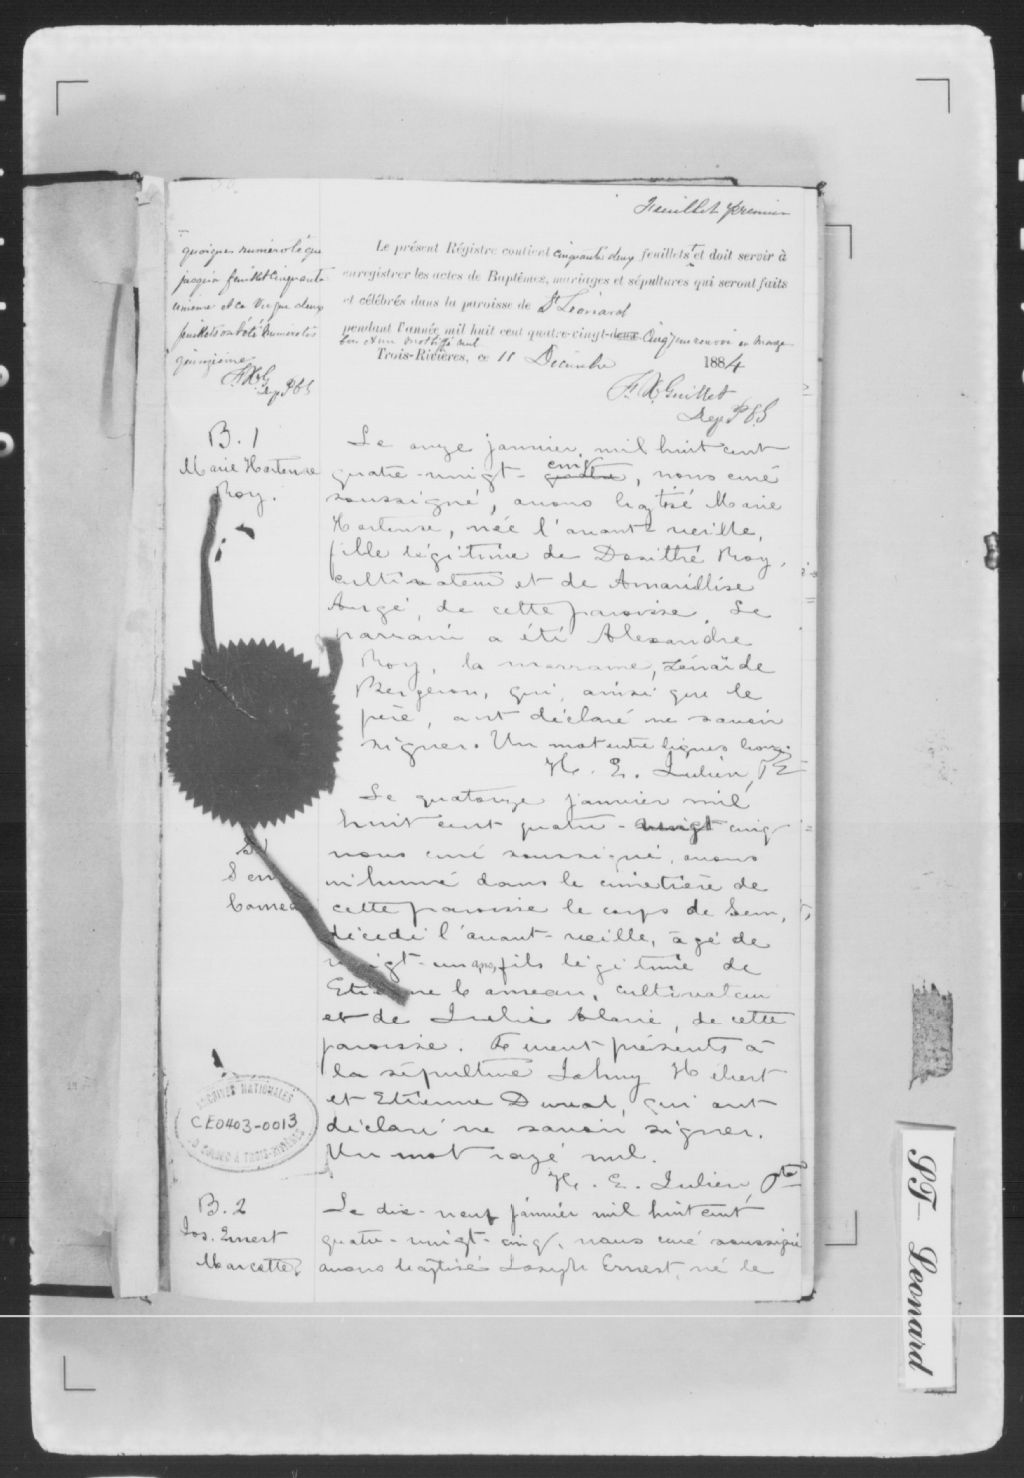 Feuillet premier
quoique numéroté que
jusqu'au feuillet cinquante
unième et ce vu que deux
feuillets ont été numérotés
quinzième
F.X.G
Dep P C S
Le présent Régistre contient cinquante deux feuillets et doit servir à
enregistrer les actes de Baptêmes, mariages et sépultures qui seront faits
et célébrés dans la paroisse de St Léonard
pendant l'année mil huit cent quatre-vingt-deux Cinq / un renvoi en marge
bon & un mot rayé nul
Trois-Rivières, ce 11 Décembre 1884
F. X. Guillet
Dep P C S
B. 1
Marie Hortense
Roy.
Le onze janvier mil huit cent
quatre-vingt- quatre cinq, nous curé
soussigné, avons baptisé Marie
Hortense, née l'avant-veille,
fille légitime de Dosithé Roy,
cultivateur et de Amarillise
Augé, de cette paroisse. Le
parrain a été Alexandre
Roy, la marraine, Zénaïde
Bergeron, qui, ainsi que le
père, ont déclaré ne savoir
signer. Un mot entre lignes bon.
H. E. Julien, Ptre
S 1
Sem
Comeau
Le quatorze janvier mil
huit cent quatre-vingt cinq
nous curé soussigné, avons
inhumé dans le cimetière de
cette paroisse le corps de Sem,
décédé l'avant-veille, âgé de
vingt-un ans, fils légitime de
Etienne Comeau, cultivateur
et de Julie Alarie, de cette
paroisse. Furent présents à
la sépulture Johny Hébert
et Etienne Duval, qui ont
déclaré ne savoir signer.
Un mot rayé nul.
H. E. Julien Ptre
ARCHIVES NATIONALES
CE0403-0013
DU QUÉBEC À TROIS-RIVIÈRES
B. 2
Jos. Ernest
Marcotte
Le dix-neuf janvier mil huit cent
quatre-vingt-cinq, nous curé soussigné
avons baptisé Joseph Ernest, né le
ST-Leonard